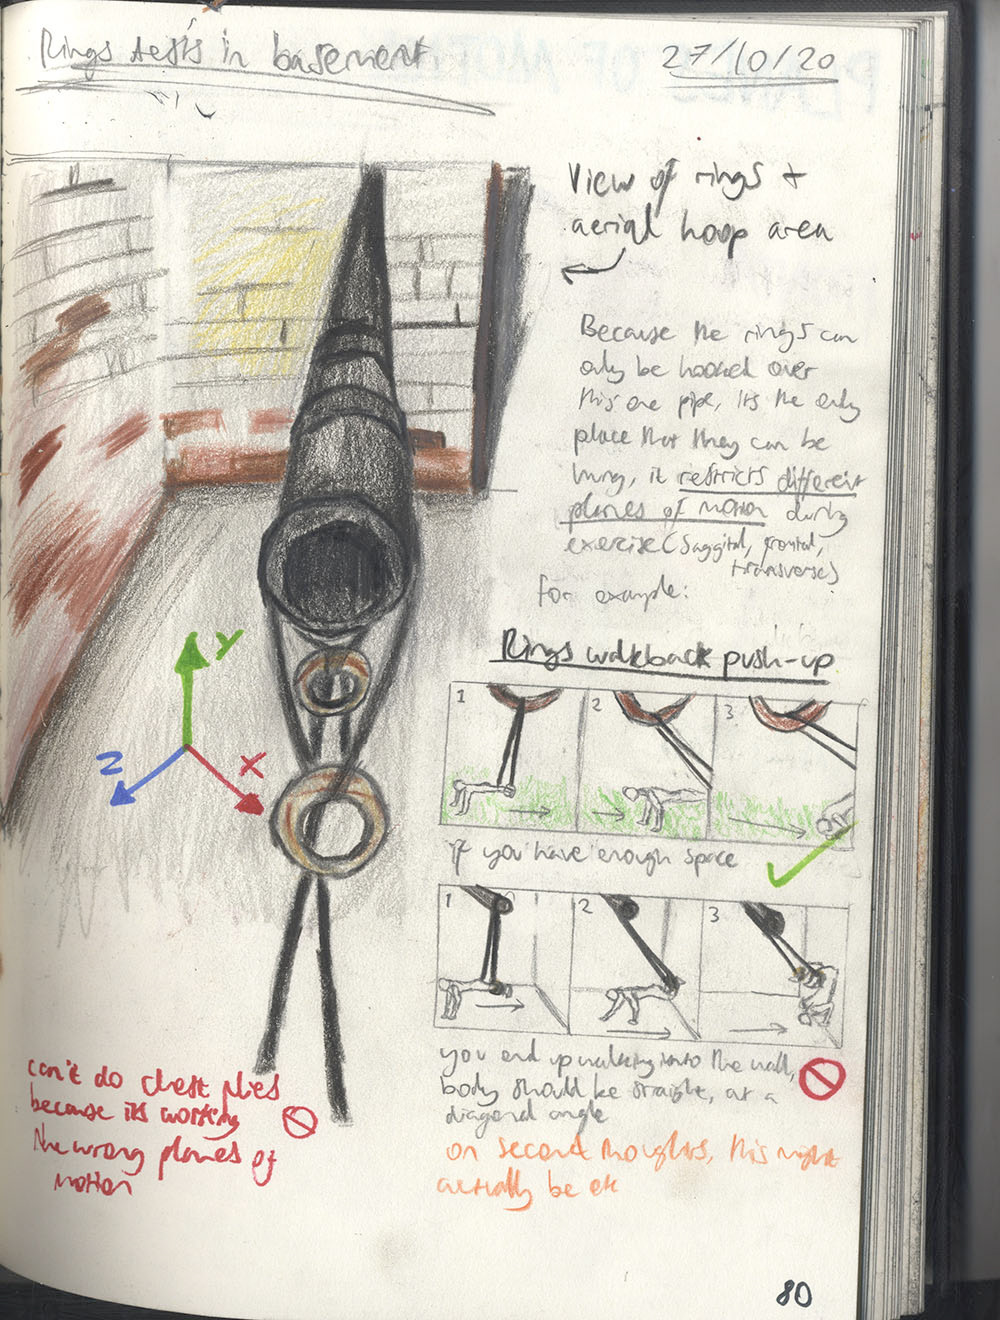 Rings tests in basement.
27/10/20
View of rings +
aerial hoop area
Because the rings can
only be hooked over
this one pipe, its the only
place that they can be
hung, it restricts different
planes of motion during
exercise (saggital, frontal,
transverse)
for example:
Rings walkback push-up
1
2
3
if you have enough space
Y
Z
X
1
2
3
you end up walking into the wall,
body should be straight, at a
diagonal angle
on second thoughts, this might
actually be ok
can't do chest flies
because its working
the wrong planes of
motion
80